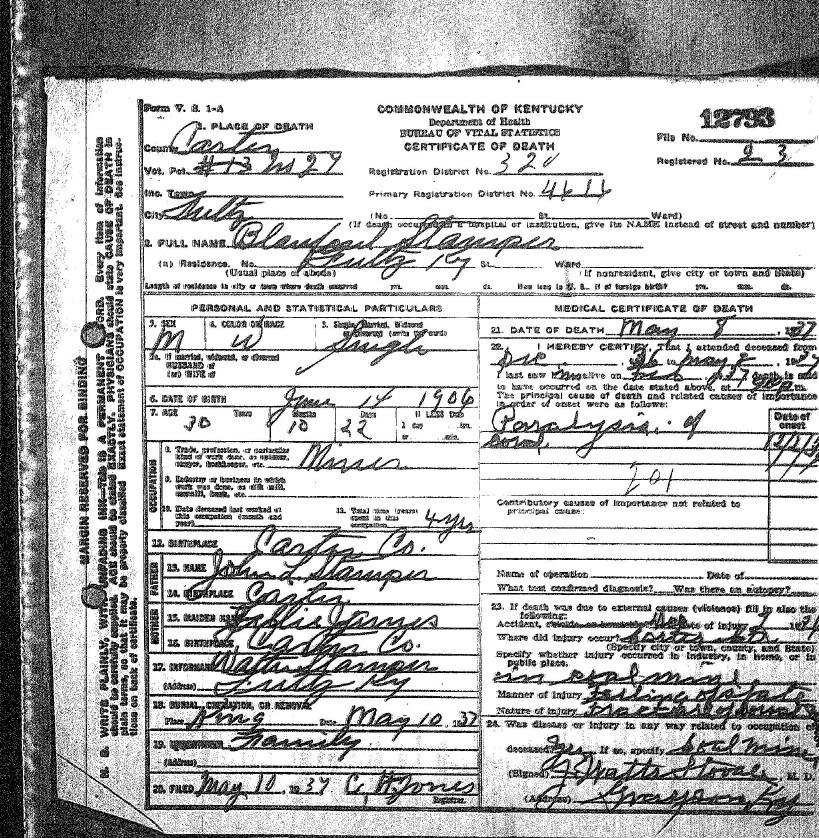 Form V. S. 1-A
COMMONWEALTH OF KENTUCKY
Department of Health
BUREAU OF VITAL STATISTICS
CERTIFICATE OF DEATH
12793
File No.
Registered No. 23
1. PLACE OF DEATH
County Carter
Vot. Pct. #13 M27
Registration District No. 320
Inc. Town
Primary Registration District No.
City Fultz
(No. St. Ward)
(If death occurred in a hospital or institution, give its NAME instead of street and number)
2. FULL NAME Stamper
(a) Residence. No. Fultz Ky St. Ward
(Usual place of abode) (If nonresident, give city or town and State)
Length of residence in city or town where death occurred yrs. mos. ds. How long in U. S., if of foreign birth? yrs. mos. ds.
PERSONAL AND STATISTICAL PARTICULARS
3. SEX M
4. COLOR OR RACE W
5. Single, Married, Widowed Single
5a. If married, widowed, or divorced
HUSBAND of
(or) WIFE of
6. DATE OF BIRTH June 14 1906
7. AGE 30 Years 10 Months 22 Days If LESS than
1 day hrs.
or min.
OCCUPATION
8. Trade, profession, or particular
kind of work done, as spinner,
sawyer, bookkeeper, etc. Miner
9. Industry or business in which
work was done, as silk mill,
sawmill, bank, etc.
10. Date deceased last worked at
this occupation (month and
year)
11. Total time (years)
spent in this
occupation 4 yrs
12. BIRTHPLACE Carter Co.
FATHER
13. NAME John L Stamper
14. BIRTHPLACE Carter
MOTHER
15. MAIDEN NAME James
16. BIRTHPLACE Carter Co.
17. INFORMANT Watt Stamper
(Address) Fultz Ky
18. BURIAL, CREMATION, OR REMOVAL
Place Date May 10, 1937
19. UNDERTAKER Family
(Address)
20. FILED May 10, 1937 C. H. Jones
Registrar.
MEDICAL CERTIFICATE OF DEATH
21. DATE OF DEATH May 8, 1937
22. I HEREBY CERTIFY, That I attended deceased from
Dec , 36 to May 8, 1937
I last saw him alive on death is said
to have occurred on the date stated above, at m.
The principal cause of death and related causes of importance
in order of onset were as follows:
Date of
onset
Paralysis of
201
Contributory causes of importance not related to
principal cause:
Name of operation Date of
What test confirmed diagnosis? Was there an autopsy?
23. If death was due to external causes (violence) fill in also the
following:
Accident, suicide, or homicide? Date of injury
Where did injury occur? Carter
(Specify city or town, county, and State)
Specify whether injury occurred in industry, in home, or in
public place.
in coal mine
Manner of injury falling of slate
Nature of injury fracture of
24. Was disease or injury in any way related to occupation of
deceased? Yes If so, specify Coal mine
(Signed) J Watts Stovall, M. D.
(Address) Grayson Ky
MARGIN RESERVED FOR BINDING
N. B. WRITE PLAINLY, WITH UNFADING INK—THIS IS A PERMANENT RECORD. Every item of information
should be carefully supplied. AGE should be stated EXACTLY. PHYSICIANS should state CAUSE OF DEATH in
plain terms, so that it may be properly classified. Exact statement of OCCUPATION is very important. See instruc-
tions on back of certificate.